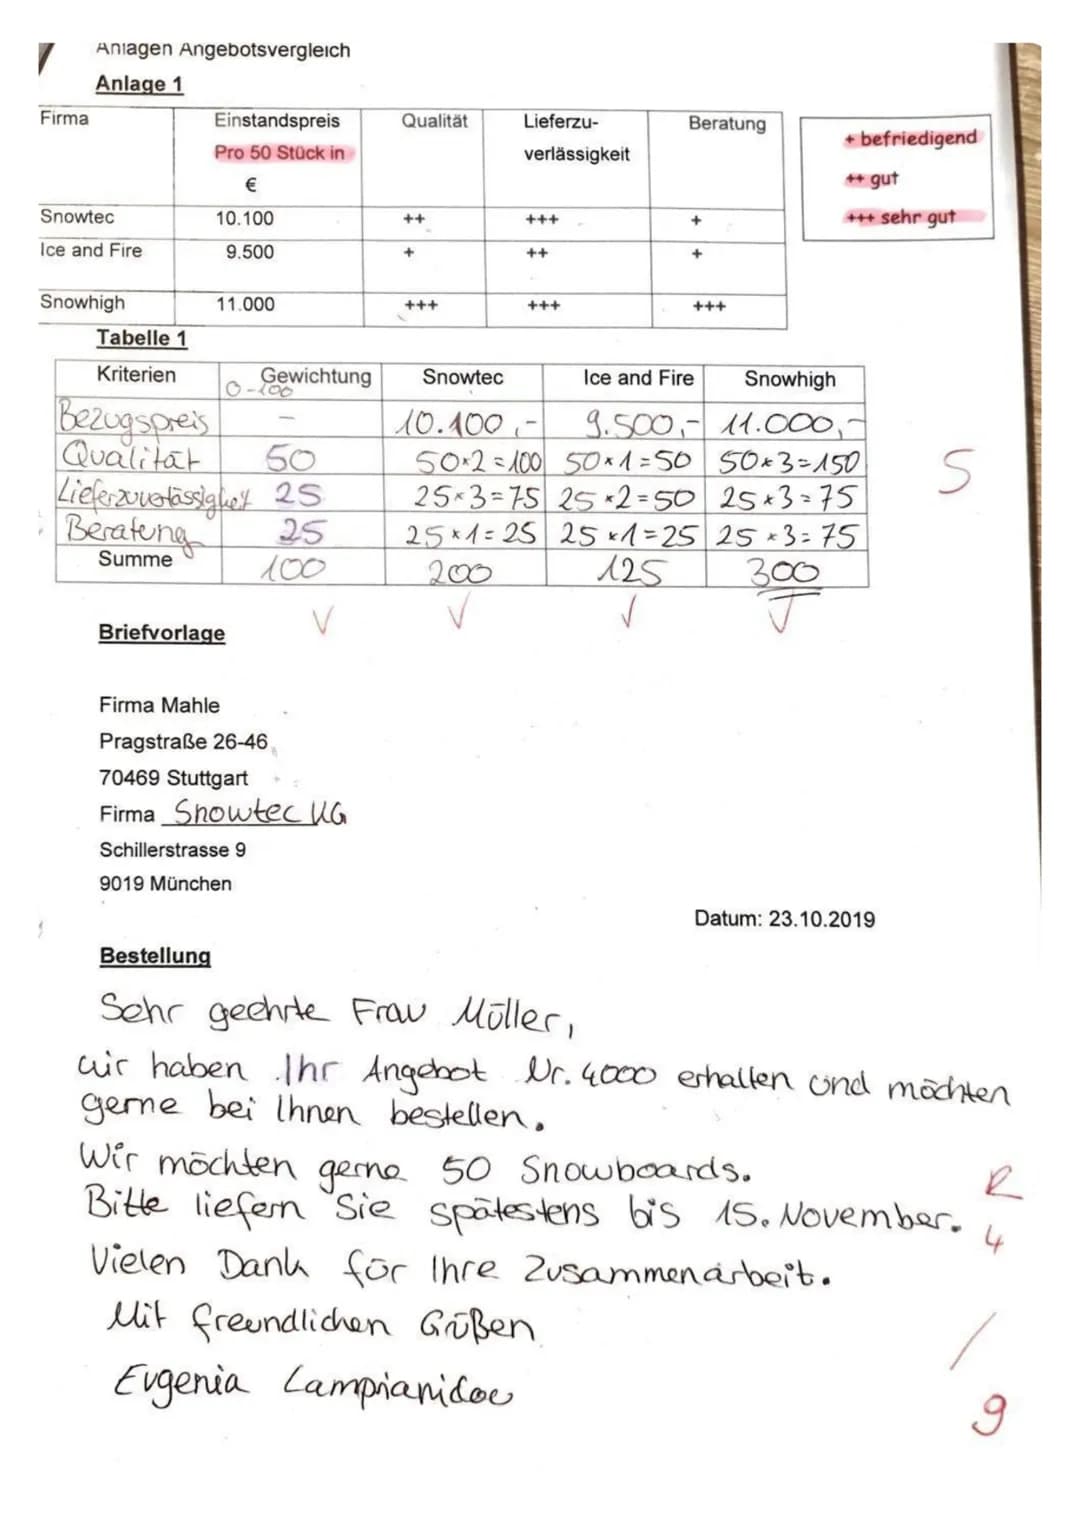 Anlagen Angebotsvergleich
Anlage 1
Firma Einstandspreis Pro 50 Stück in € Qualität Lieferzu-verlässigkeit Beratung
Snowtec 10.100 ++ +++ +
Ice and Fire 9.500 + ++ +
Snowhigh 11.000 +++ +++ +++
+ befriedigend
++ gut
+++ sehr gut
Tabelle 1
Kriterien Gewichtung 0-100 Snowtec Ice and Fire Snowhigh
Bezugspreis - 10.100,- 9.500,- 11.000,-
Qualität 50 50×2=100 50×1=50 50×3=150
Lieferzuverlässigkeit 25 25×3=75 25×2=50 25×3=75
Beratung 25 25×1=25 25×1=25 25×3=75
Summe 100 200 125 300
5
Briefvorlage
Firma Mahle
Pragstraße 26-46
70469 Stuttgart
Firma Snowtec KG
Schillerstrasse 9
9019 München
Datum: 23.10.2019
Bestellung
Sehr geehrte Frau Müller,
wir haben Ihr Angebot Nr. 4000 erhalten und möchten
gerne bei Ihnen bestellen.
Wir möchten gerne 50 Snowboards.
R
Bitte liefern Sie spätestens bis 15. November.
4
Vielen Dank für Ihre Zusammenarbeit.
Mit freundlichen Grüßen
Eugenia
9